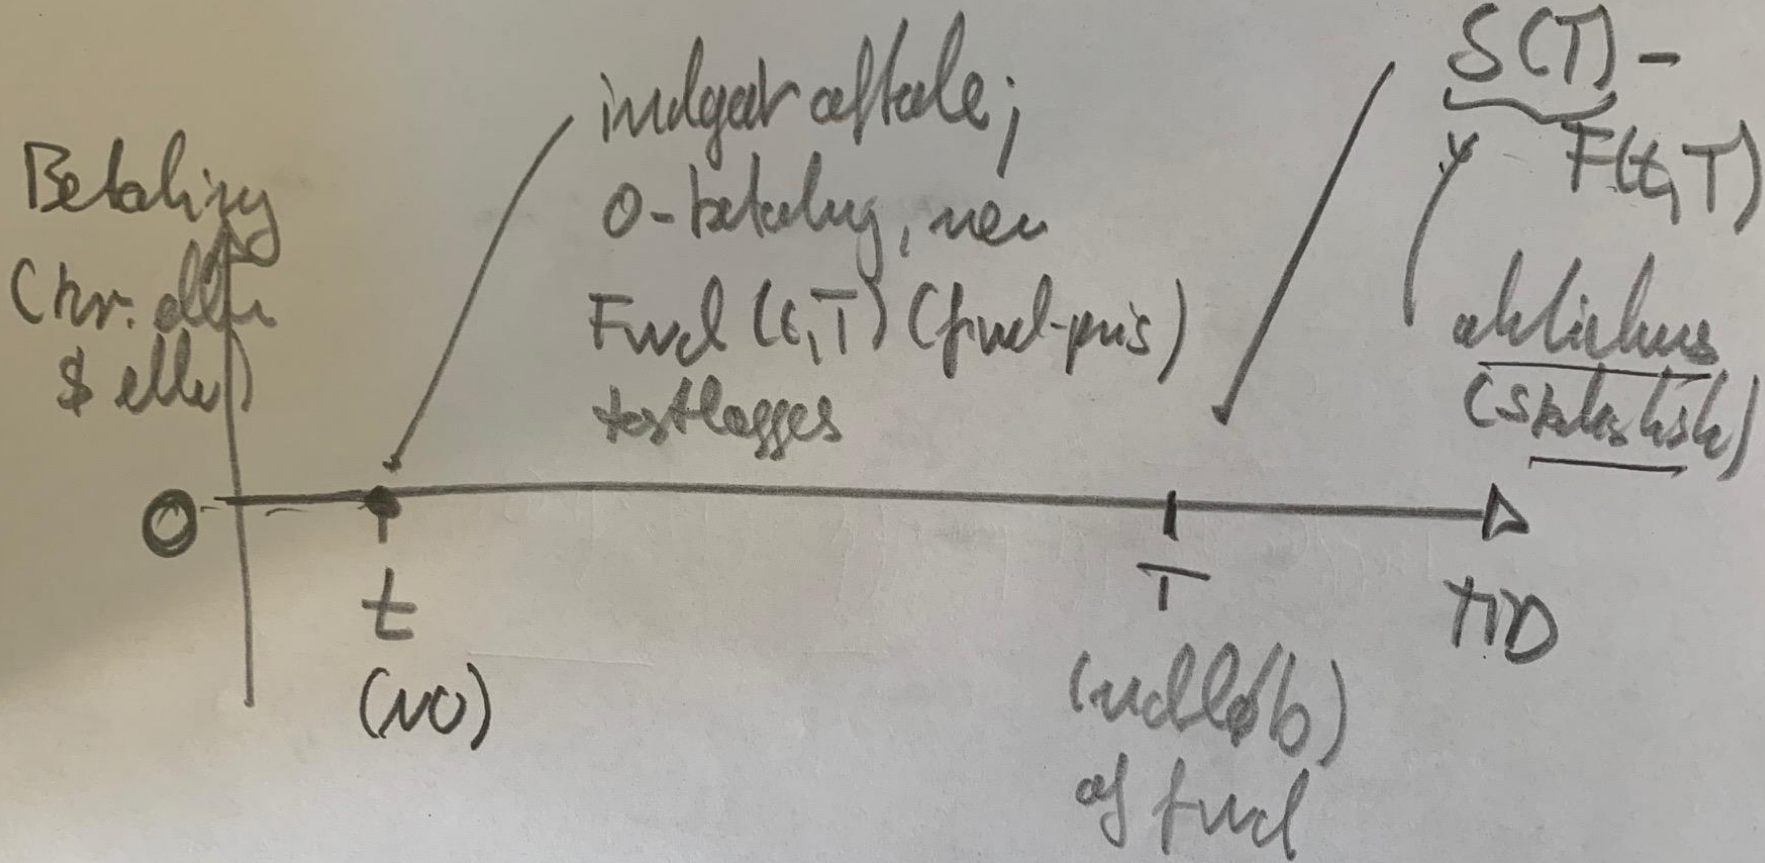 Betaling
(kr. eller
$ eller)
indgår aftale;
0-betaling, men
Fwd (t,T) (fwd-pris)
fastlægges
S(T) -
F(t,T)
aktiekurs
(stokastisk)
0
t
(NU)
T
(udløb)
af fwd
TID